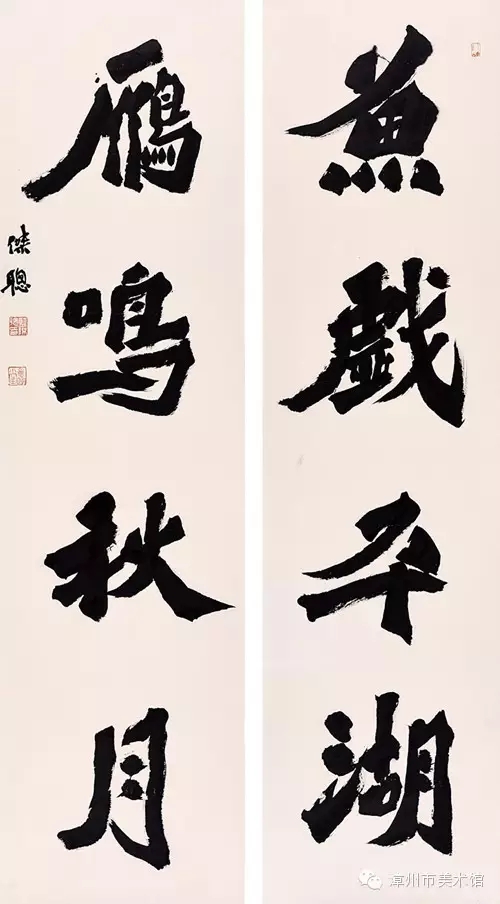 魚戲平湖
鴈鳴秋月
傑聰
漳州市美术馆